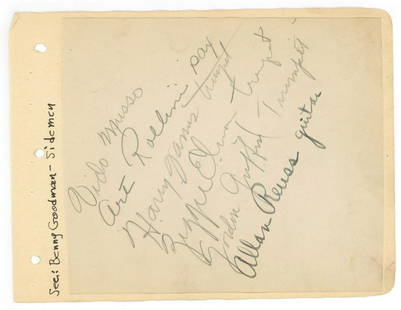 See: Benny Goodman - Sidemen
Vido Musso
Art Rollini sax
Harry James trumpet
Ziggie Elman trumpet
Gordon Griffin trumpet
Allan Reuss guitar